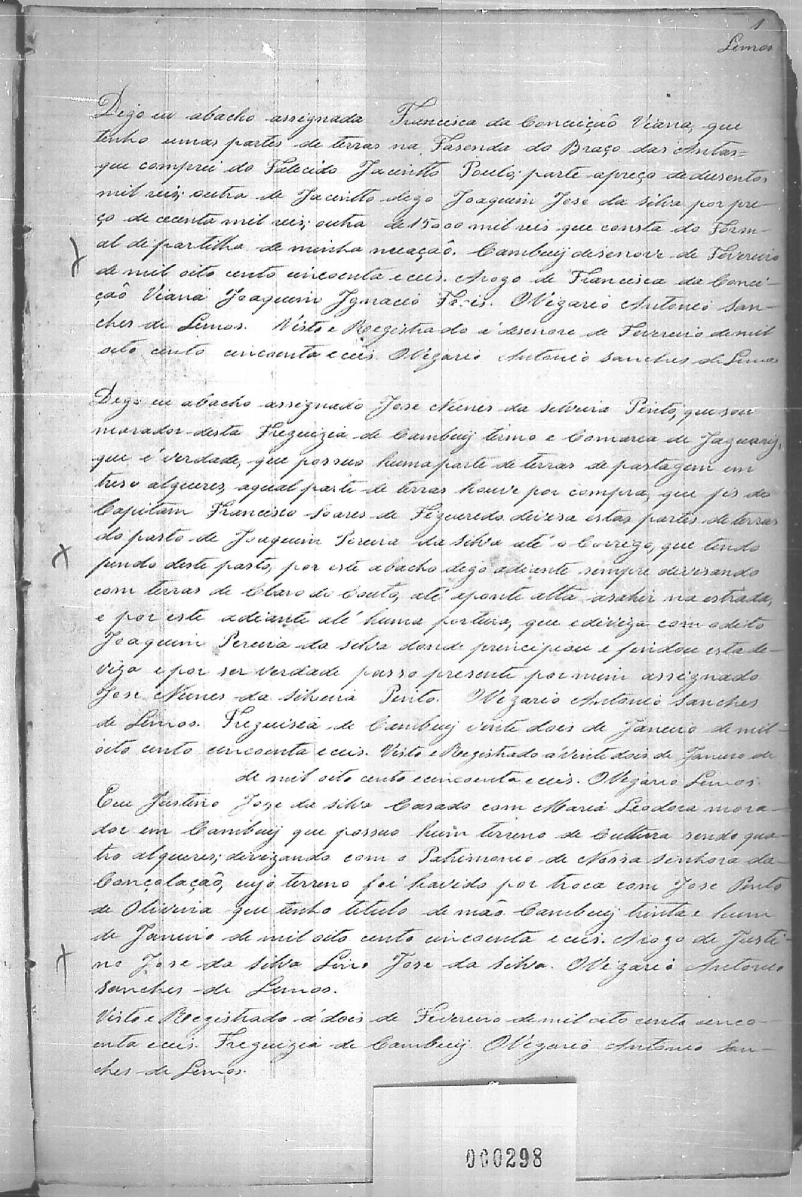 1
Lemos
Dego eu abacho assignada Francisca da Conceição Viana, que
tenho umas partes de terras na Fasenda do Braço das Antas=
que comprei do Falecido Jacintto Paulo; parte apreço de dusentos
mil reis; outra de Jacintto dego Joaquim Jose da silva por pre-
ço de cecenta mil reis; outra de 15000 mil reis que consta do Form-
al de partilha de minha meação. Cambuij desenove de Fevereiro
de mil oito cento cincoenta e ceis. Arogo de Francisca da Concei-
ção Viana Joaquim Ignacio O Vigario Antonio San-
ches de Lemos. Visto e Registrado á desenove de Fevereiro de mil
oito cento cincoenta e ceis. O Vigario Antonio Sanches de Lemos
Dego eu abacho assignado Jose Nunes da silveira Pinto, que sou
morador desta Freguizia de Cambuij termo e Comarca de Jaguarij,
que é verdade, que possuo huma parte de terras de pastagem em
trese alqueres, aqual parte de terras houve por compra, que fis do
Capitam Francisco Soares de Figueredo, divisa estas partes de terras
do pasto de Joaquim Pereira da silva até o Corrego, que tendo
pendo deste pasto, por este abacho dego adiante sempre divisando
com terras de Claro do Couto, até aponte alta asahir na estrada,
e por este adiante até huma porteira, que ediviza com odito
Joaquim Pereira da silva donde principiou e findou esta de-
viza e por ser verdade passo presente por mim assignado
Jose Nunes da silveira Pinto. O Vigario Antonio Sanches
de Lemos. Freguisia de Cambuij vinte dois de Janeiro de mil
oito cento cincoenta e ceis. Visto e Registrado á vinte dois de Janeiro de
de mil oito cento e cincoenta e ceis. O Vigário Lemos.
Eu Justino Jose da silva Casado com Maria Leodora mora-
dor em Cambuij que possuo hum terreno de Cultura sendo qua-
tro alqueres; divizando com o Patrimonio de Nossa Senhora da
Concolação, cujo terreno foi havido por troca com Jose Pinto
de Oliveira que tenho titulo de mão Cambuij trinta e hum
de Janeiro de mil oito cento cincoenta e ceis. Arogo de Justi-
no Jose da silva Lino Jose da silva. O Vigario Antonio
Sanches de Lemos.
Visto e Registrado á dois de Fevereiro de mil oito cento cinco-
enta e ceis. Freguizia de Cambuij O Vigario Antonio San-
ches de Lemos.
000298